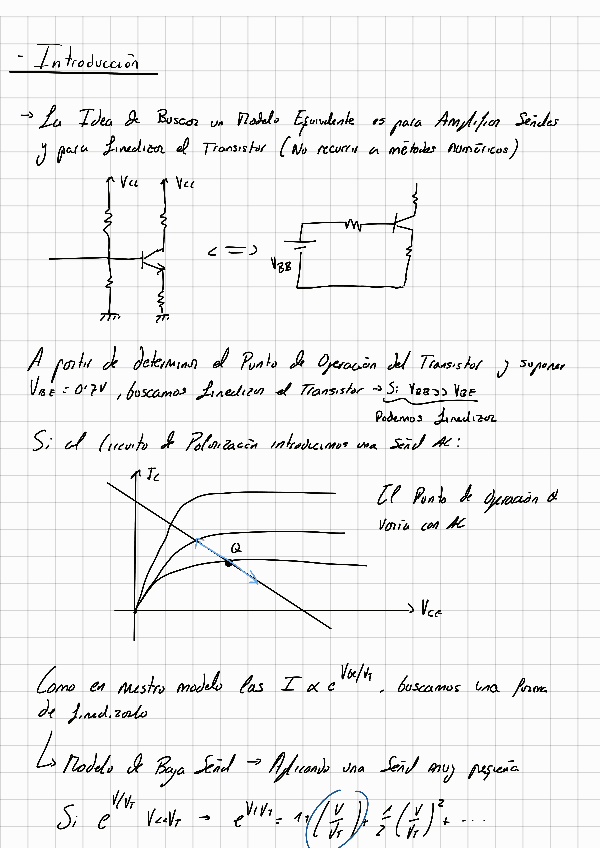 - Introducción
→ La Idea de Buscar un Modelo Equivalente es para Amplificar Señales
y para Linealizar el Transistor (No recurrir a métodos numéricos)
Vcc Vcc
<=>
VBB
A partir de determinar el Punto de Operación del Transistor y suponer
VBE = 0'7V, buscamos Linealizar el Transistor → Si VBB >> VBE
Podemos Linealizar
Si al Circuito de Polarización introducimos una Señal AC:
Ic
El Punto de Operación Q
Varía con AC
Q
VCE
Como en nuestro modelo las I ∝ e^VBE/VT, buscamos una forma
de Linealizarlo
↳ Modelo de Baja Señal → Aplicando una Señal muy pequeña
Si e^V/VT V<<VT → e^V/VT = 1+(V/VT)+ 1/2 (V/VT)^2 + ...